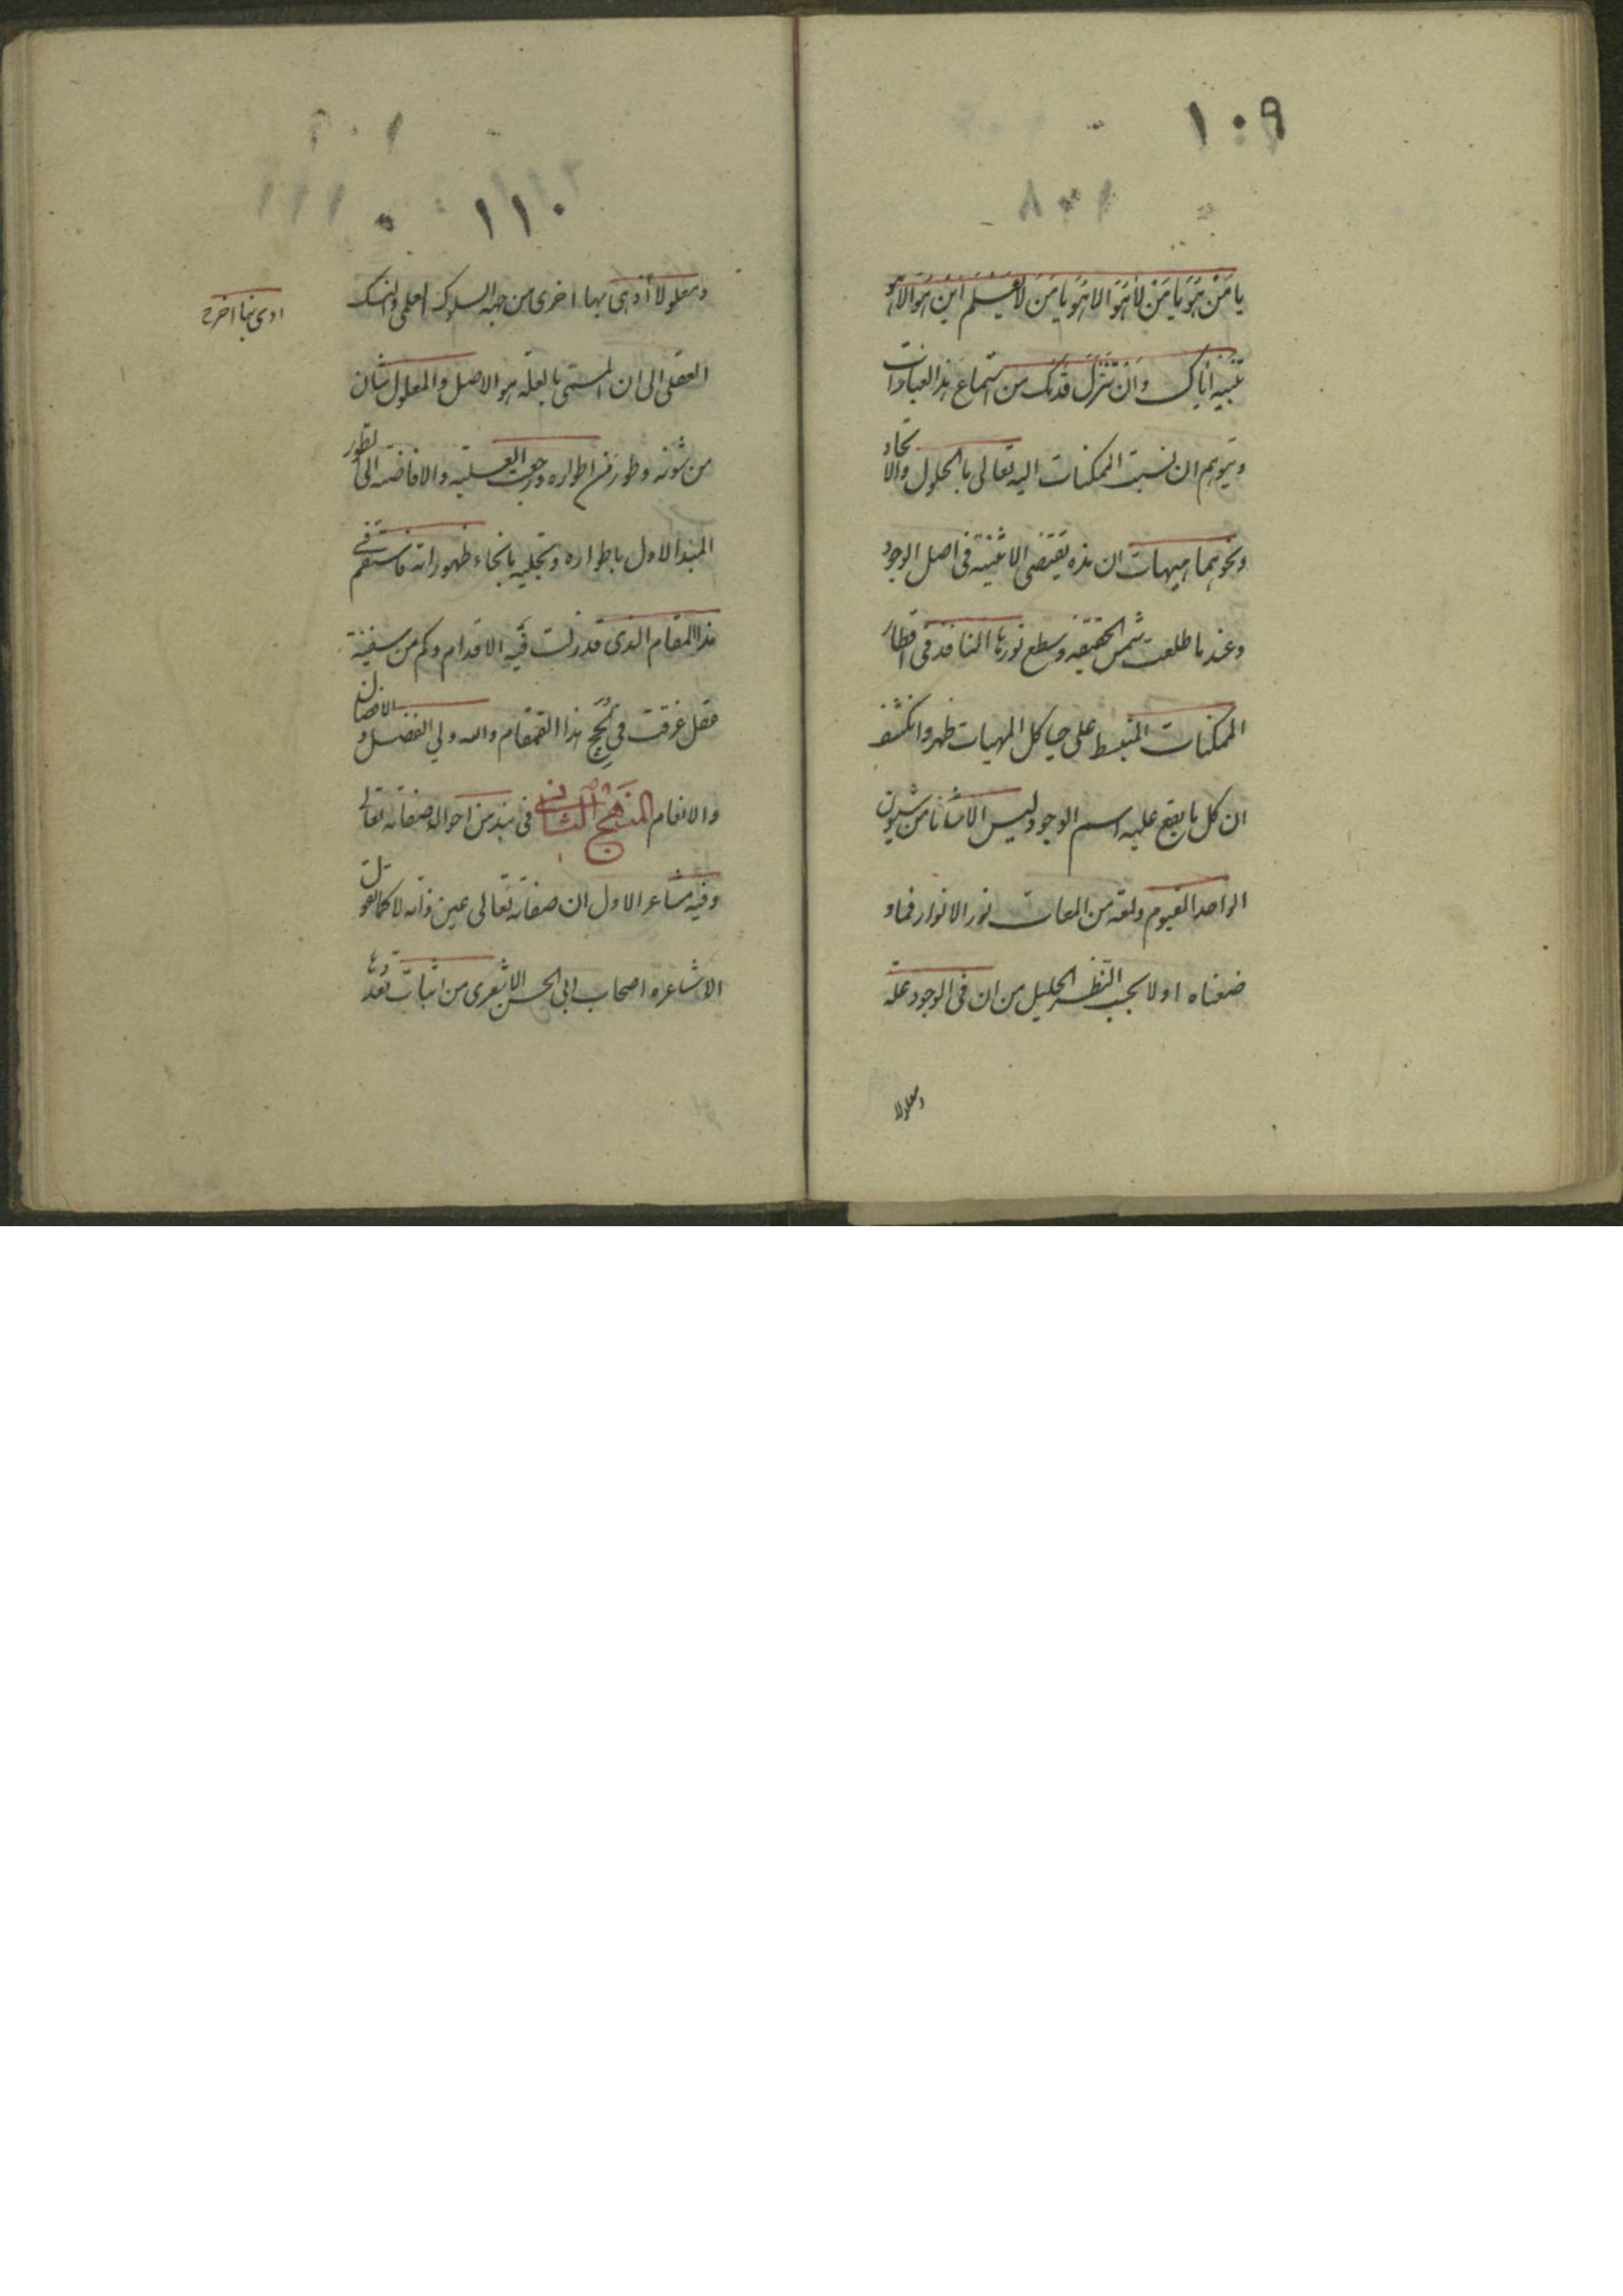 ١٠٩
يا من هو يا من لا هو الا هو يا من لا يعلم اين هو الا هو
تنبيه اياك وان تتزل قدمك من استماع هذا العبارات
وتتوهم ان نسبت الممكنات اليه تعالى بالحلول والاتحاد
ونحوهما هيهات ان هذه يقتضى الاثنينية فى اصل الوجود
وعند ما طلعت شمس الحقيقه وسطع نورها النافذ فى اقطار
الممكنات المنبسط على هياكل المهيات ظهر وانكشف
ان كل ما يقع عليه اسم الوجود ليس الا شأنا من شيون
الواحد القيوم ولمعه من لمعات نور الانوار فما و
ضعناه اولا بحسب النظر الجليل من ان فى الوجود علة
ومعلولا
١١٠
ومعلولا أدى بها اخرى من جهه السلوك العلمى والنسك
ادى بنا اخره
العقلى الى ان المسمى بالعلة هو الاصل والمعلول شان
من شونه وطور من اطواره ورجعت العلية والافاضة الى تطور
المبدا الاول باطواره وتجليه بانحاء ظهوراته فاستقم فى
هذا المقام الذى قد زلت فيه الاقدام وكم من سفينة
عقل غرقت فى لجج هذا القمقام والله ولي الفضل و الافضال
والانعام المنهج الثانى فى نبذ من احوال صفاته تعالى
وفيه مشاعر الاول ان صفاته تعالى عين ذاته لا كما تقول
الاشاعره اصحاب ابى الحسن الاشعرى من اثبات تعددها